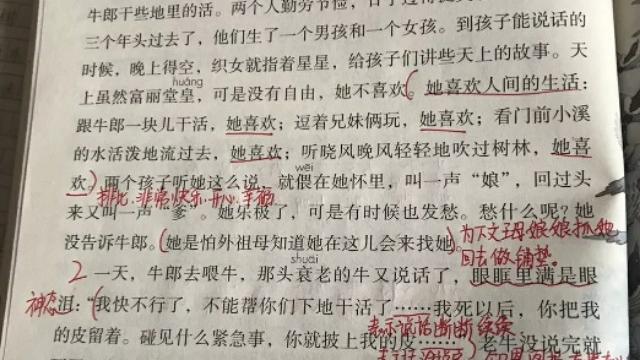 牛郎干些地里的活。两个人勤劳节俭，日子过得
三个年头过去了，他们生了一个男孩和一个女孩。到孩子能说话的
时候，晚上得空，织女就指着星星，给孩子们讲些天上的故事。天
huáng
上虽然富丽堂皇，可是没有自由，她不喜欢。(她喜欢人间的生活：
跟牛郎一块儿干活，她喜欢；逗着兄妹俩玩，她喜欢；看门前小溪
的水活泼地流过去，她喜欢；听晓风晚风轻轻地吹过树林，她喜
wēi
欢。)两个孩子听她这么说，就偎在她怀里，叫一声“娘”，回过头
排比 非常快乐、开心、幸福
来又叫一声“爹”。她乐极了，可是有时候也发愁。愁什么呢？她
没告诉牛郎。(她是怕外祖母知道她在这儿会来找她。)
为下文王母娘娘抓她
回去做铺垫。
shuāi
2 一天，牛郎去喂牛，那头衰老的牛又说话了，眼眶里满是眼
神态
泪：“(我快不行了，不能帮你们下地干活了……我死以后，你把我
表示说话断断续续
的皮留着。碰见什么紧急事，你就披上我的皮……)老牛没说完就